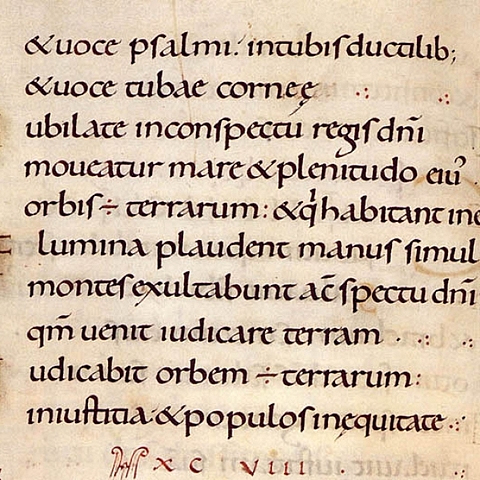 &uoce psalmi. intubisductilib;
&uoce tubae corneę .:.
ubilate inconspectu regisdñi
moueatur mare &plenitudo eiuˀ
orbis÷ terrarum: &q̇habitant ine
lumina plaudent manus simul
montesexultabunt ac̄spectudñi
qm̄ uenit iudicare terram .:.
udicabit orbem ÷terrarum:
iniustitia·&populosinęquitate .:.
XCVIII